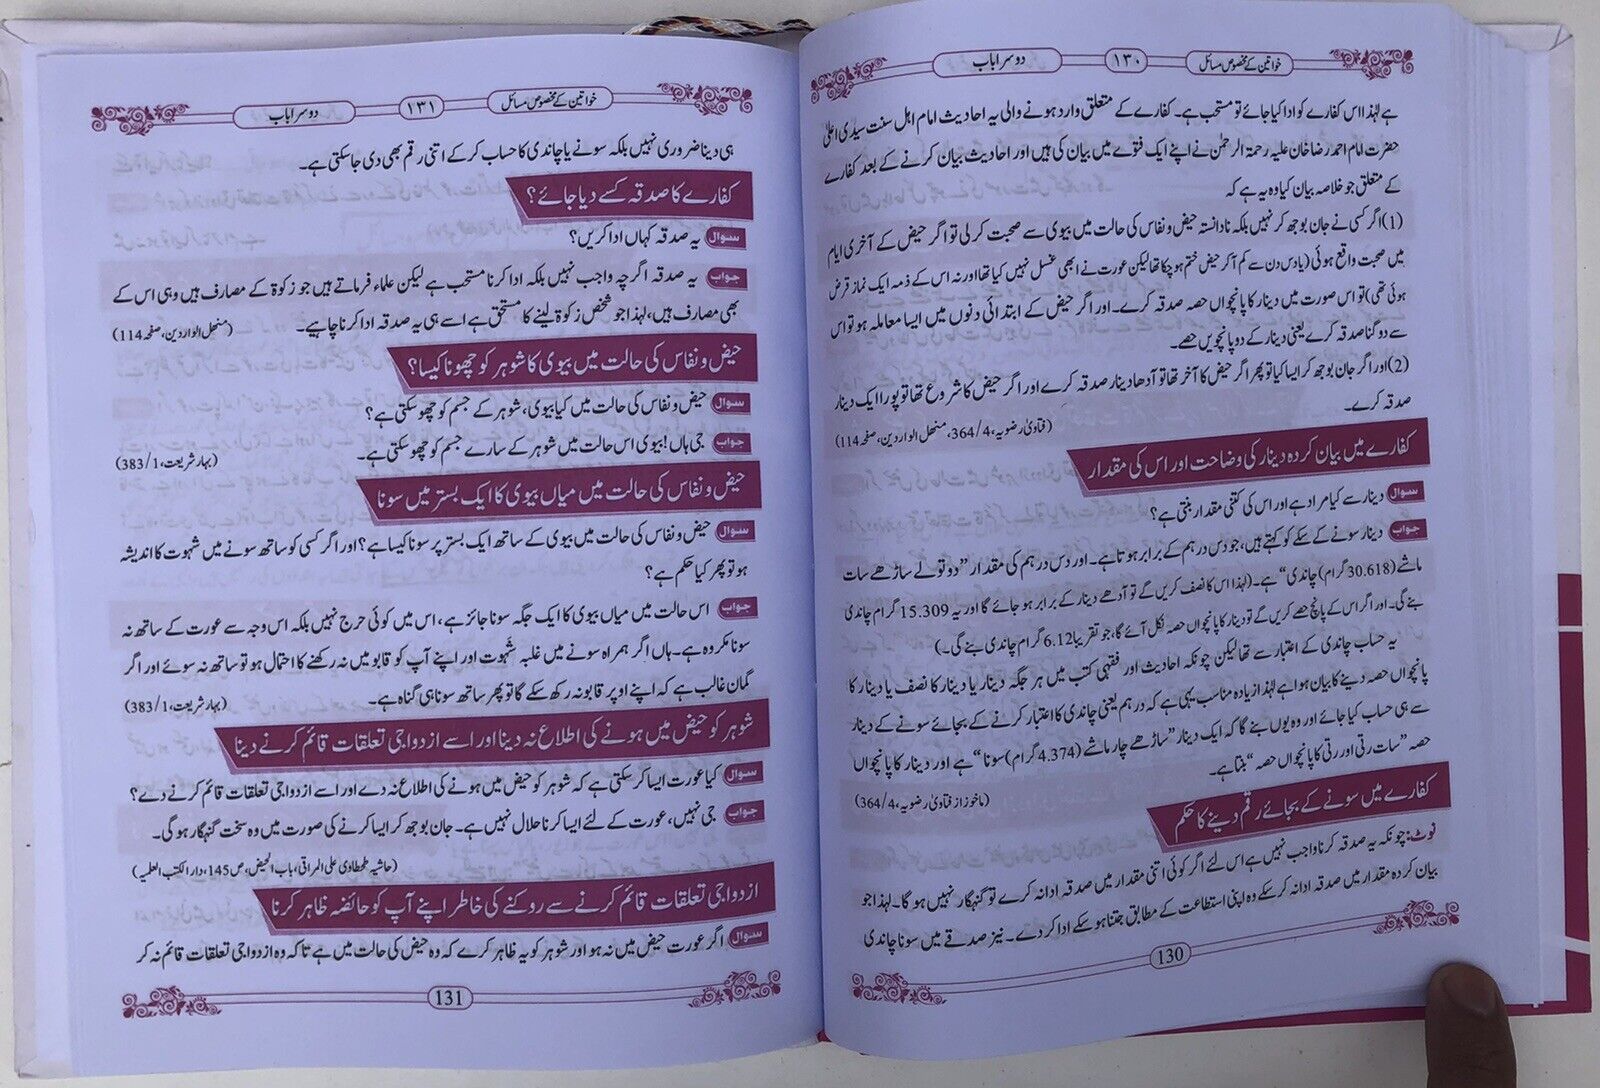 خواتین کے مخصوص مسائل
۱۳۰
دوسرا باب
ہے لہٰذا اس کفارے کو ادا کیا جائے تو مستحب ہے۔ کفارے کے متعلق وارد ہونے والی یہ احادیث امام اہل سنت سیدی اعلیٰ
حضرت امام احمد رضا خان علیہ رحمۃ الرحمٰن نے اپنے ایک فتوے میں بیان کی ہیں اور احادیث بیان کرنے کے بعد کفارے
کے متعلق جو خلاصہ بیان کیا وہ یہ ہے کہ
(1) اگر کسی نے جان بوجھ کر نہیں بلکہ نادانستہ حیض و نفاس کی حالت میں بیوی سے صحبت کر لی تو اگر حیض کے آخری ایام
میں صحبت واقع ہوئی (یا دس دن سے کم آ کر حیض ختم ہو چکا تھا لیکن عورت نے ابھی غسل نہیں کیا تھا اور نہ اس کے ذمہ ایک نماز قرض
ہوئی تھی) تو اس صورت میں دینار کا پانچواں حصہ صدقہ کرے۔ اور اگر حیض کے ابتدائی دنوں میں ایسا معاملہ ہو تو اس
سے دوگنا صدقہ کرے یعنی دینار کے دو پانچویں حصے۔
(2) اور اگر جان بوجھ کر ایسا کیا تو پھر اگر حیض کا آخر تھا تو آدھا دینار صدقہ کرے اور اگر حیض کا شروع تھا تو پورا ایک دینار
صدقہ کرے۔
(فتاویٰ رضویہ، 4/364، منھل الواردین، صفحہ 114)
کفارے میں بیان کردہ دینار کی وضاحت اور اس کی مقدار
سوال دینار سے کیا مراد ہے اور اس کی کتنی مقدار بنتی ہے؟
جواب دینار سونے کے سکے کو کہتے ہیں، جو دس درہم کے برابر ہوتا ہے۔ اور دس درہم کی مقدار ”دو تولے ساڑھے سات
ماشے (30.618 گرام) چاندی“ ہے۔ (لہٰذا اس کا نصف کریں گے تو آدھے دینار کے برابر ہو جائے گا اور یہ 15.309 گرام چاندی
بنے گی۔ اور اگر اس کے پانچ حصے کریں گے تو دینار کا پانچواں حصہ نکل آئے گا، جو تقریباً 6.12 گرام چاندی بنے گی۔)
یہ حساب چاندی کے اعتبار سے تھا لیکن چونکہ احادیث اور فقہی کتب میں ہر جگہ دینار یا دینار کا نصف یا دینار کا
پانچواں حصہ دینے کا بیان ہوا ہے لہٰذا زیادہ مناسب یہی ہے کہ درہم یعنی چاندی کا اعتبار کرنے کے بجائے سونے کے دینار
سے ہی حساب کیا جائے اور وہ یوں بنے گا کہ ایک دینار ”ساڑھے چار ماشے (4.374 گرام) سونا“ ہے اور دینار کا پانچواں
حصہ ”سات رتی اور رتی کا پانچواں حصہ“ بنتا ہے۔
(ماخوذ از فتاویٰ رضویہ، 4/364)
کفارے میں سونے کے بجائے رقم دینے کا حکم
نوٹ: چونکہ یہ صدقہ کرنا واجب نہیں ہے اس لئے اگر کوئی اتنی مقدار میں صدقہ ادا نہ کرے تو گنہگار نہیں ہو گا۔ لہٰذا جو
بیان کردہ مقدار میں صدقہ ادا نہ کر سکے وہ اپنی استطاعت کے مطابق جتنا ہو سکے ادا کر دے۔ نیز صدقے میں سونا چاندی
130
خواتین کے مخصوص مسائل
۱۳۱
دوسرا باب
ہی دینا ضروری نہیں بلکہ سونے یا چاندی کا حساب کر کے اتنی رقم بھی دی جا سکتی ہے۔
کفارے کا صدقہ کسے دیا جائے؟
سوال یہ صدقہ کہاں ادا کریں؟
جواب یہ صدقہ اگرچہ واجب نہیں بلکہ ادا کرنا مستحب ہے لیکن علماء فرماتے ہیں جو زکوٰۃ کے مصارف ہیں وہی اس کے
بھی مصارف ہیں، لہٰذا جو شخص زکوٰۃ لینے کا مستحق ہے اسے ہی یہ صدقہ ادا کرنا چاہیے۔
(منھل الواردین، صفحہ 114)
حیض و نفاس کی حالت میں بیوی کا شوہر کو چھونا کیسا؟
سوال حیض و نفاس کی حالت میں کیا بیوی، شوہر کے جسم کو چھو سکتی ہے؟
جواب جی ہاں! بیوی اس حالت میں شوہر کے سارے جسم کو چھو سکتی ہے۔
(بہار شریعت، 1/383)
حیض و نفاس کی حالت میں میاں بیوی کا ایک بستر میں سونا
سوال حیض و نفاس کی حالت میں بیوی کے ساتھ ایک بستر پر سونا کیسا ہے؟ اور اگر کسی کو ساتھ سونے میں شہوت کا اندیشہ
ہو تو پھر کیا حکم ہے؟
جواب اس حالت میں میاں بیوی کا ایک جگہ سونا جائز ہے، اس میں کوئی حرج نہیں بلکہ اس وجہ سے عورت کے ساتھ نہ
سونا مکروہ ہے۔ ہاں اگر ہمراہ سونے میں غلبہ شَہوت اور اپنے آپ کو قابو میں نہ رکھنے کا احتمال ہو تو ساتھ نہ سوئے اور اگر
گمان غالب ہے کہ اپنے اوپر قابو نہ رکھ سکے گا تو پھر ساتھ سونا ہی گناہ ہے۔
(بہار شریعت، 1/383)
شوہر کو حیض میں ہونے کی اطلاع نہ دینا اور اسے ازدواجی تعلقات قائم کرنے دینا
سوال کیا عورت ایسا کر سکتی ہے کہ شوہر کو حیض میں ہونے کی اطلاع نہ دے اور اسے ازدواجی تعلقات قائم کرنے دے؟
جواب جی نہیں، عورت کے لئے ایسا کرنا حلال نہیں ہے۔ جان بوجھ کر ایسا کرنے کی صورت میں وہ سخت گنہگار ہو گی۔
(حاشیہ طحطاوی علی المراقی، باب الحیض، ص 145، دار الکتب العلمیہ)
ازدواجی تعلقات قائم کرنے سے روکنے کی خاطر اپنے آپ کو حائضہ ظاہر کرنا
سوال اگر عورت حیض میں نہ ہو اور شوہر کو یہ ظاہر کرے کہ وہ حیض کی حالت میں ہے تاکہ وہ ازدواجی تعلقات قائم نہ کر
131